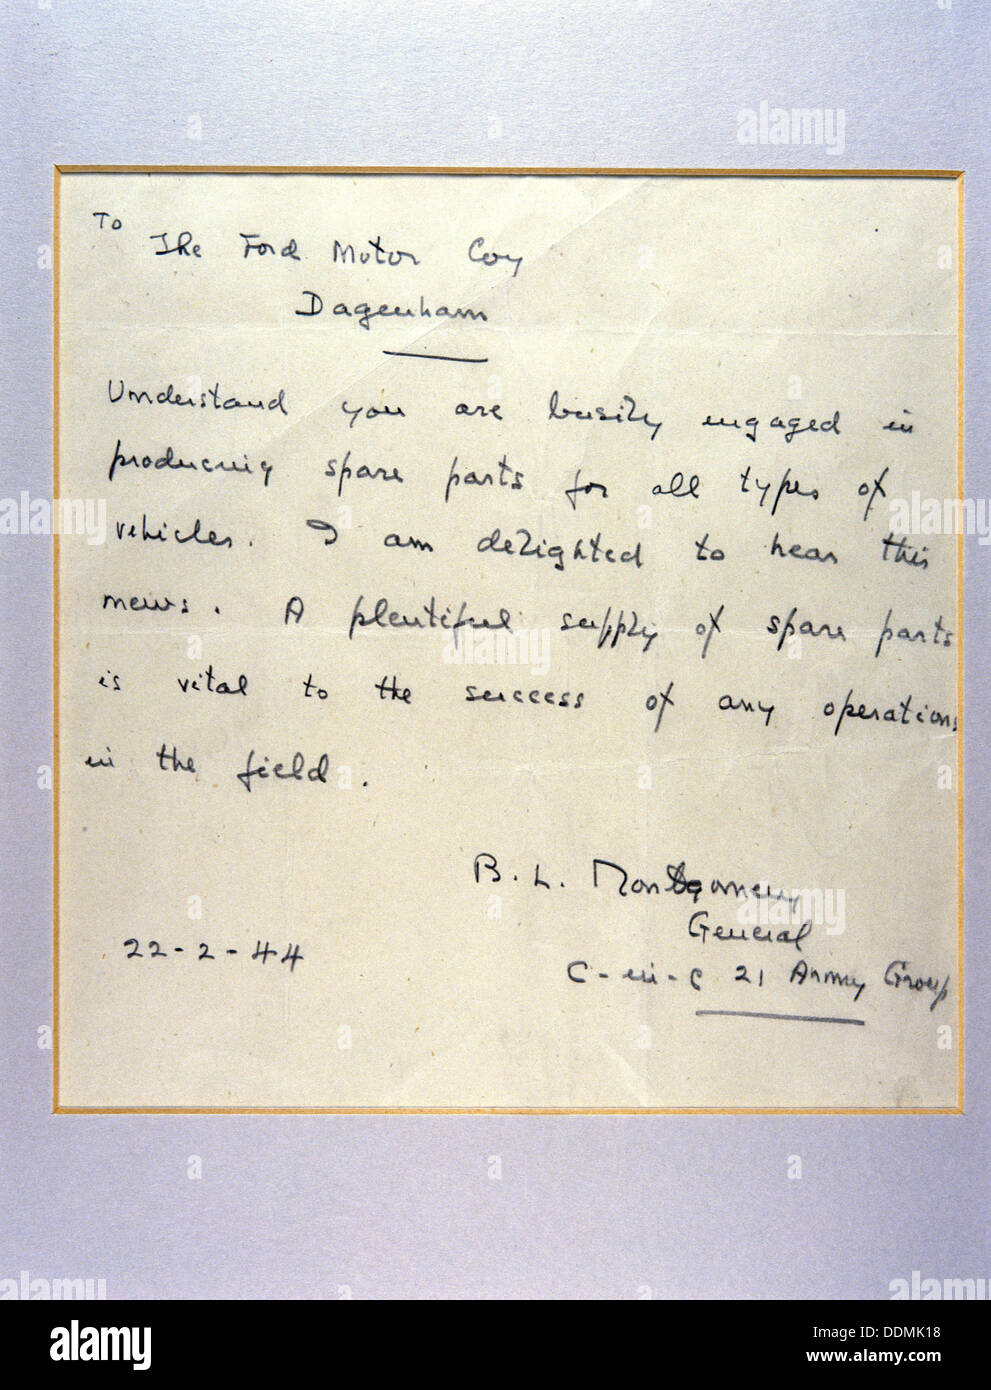 To
The Ford Motor Coy
Dagenham
Understand you are busily engaged in
producing spare parts for all types of
vehicles. I am delighted to hear this
news. A plentiful supply of spare parts
is vital to the success of any operations
in the field.
B. L. Montgomery
General
22-2-44
C-in-C 21 Army Group
alamy
a
alamy
DDMK18
www.alamy.com